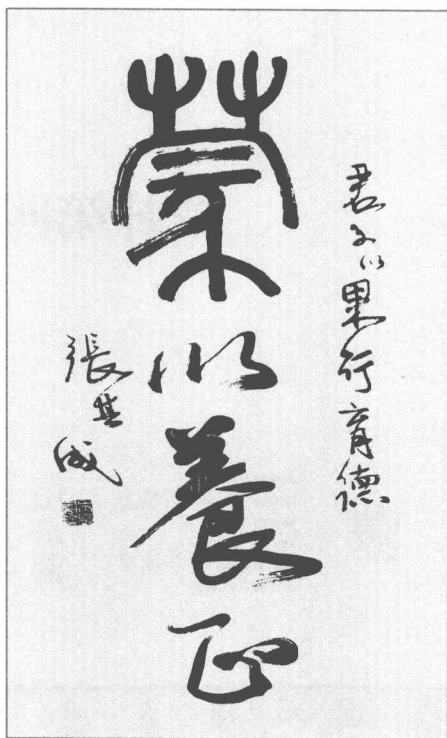 君子以果行育德
蒙以養正
張其成